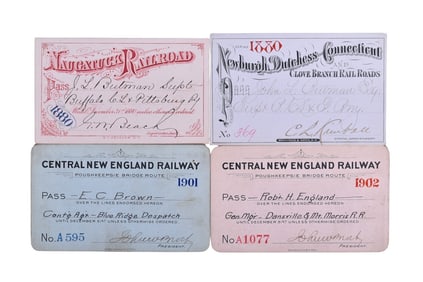 NAUGATUCK RAILROAD
Pass J. L. Putman Supt.
Buffalo C. L. & Pittsburg Ry
1880
G. W. Beach
1880
Newburgh, Dutchess and Connecticut
AND
CLOVE BRANCH RAIL ROADS
Pass John L. Putman Esq
No 369
C. L. Kimball
CENTRAL NEW ENGLAND RAILWAY
POUGHKEEPSIE BRIDGE ROUTE
1901
PASS E. C. Brown
OVER THE LINES ENDORSED HEREON
Contg. Agt. Blue Ridge Despatch
UNTIL DECEMBER 31ST UNLESS OTHERWISE ORDERED.
No. A 595
PRESIDENT.
CENTRAL NEW ENGLAND RAILWAY
POUGHKEEPSIE BRIDGE ROUTE
1902
PASS Robt. H. England
OVER THE LINES ENDORSED HEREON
Gen. Mgr. Dansville & Mt. Morris R.R.
UNTIL DECEMBER 31ST UNLESS OTHERWISE ORDERED.
No. A1077
PRESIDENT.